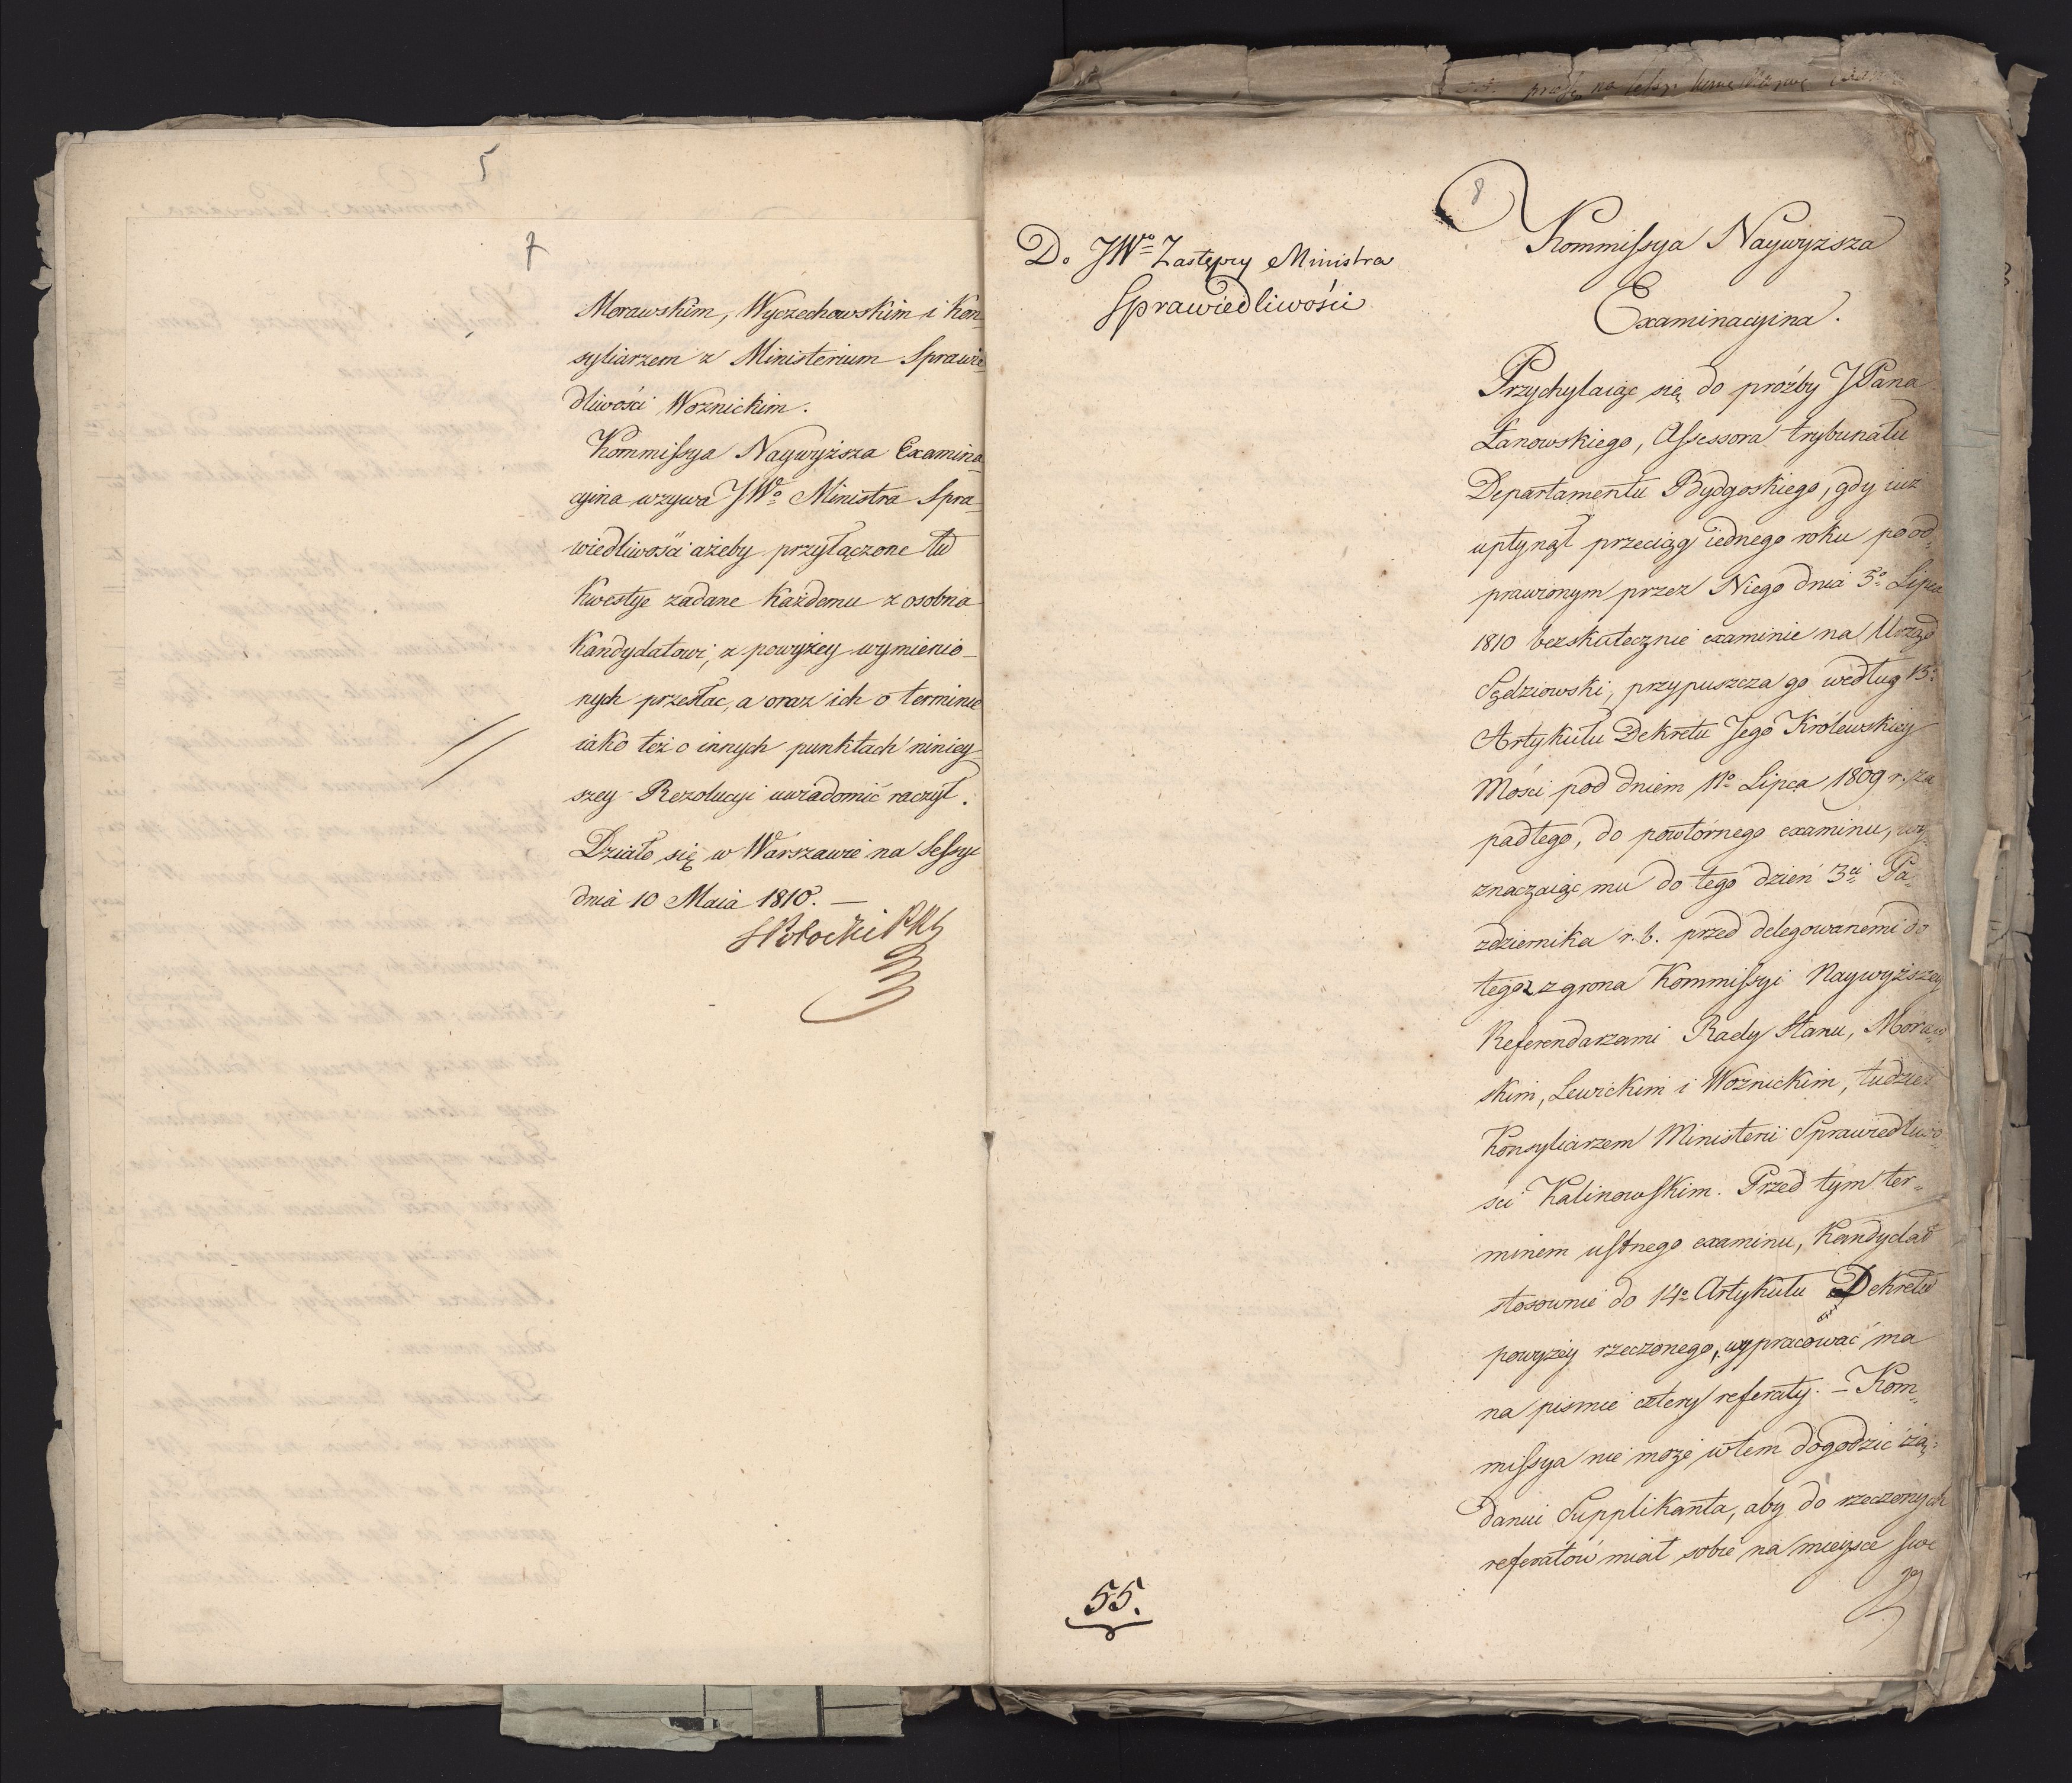 5
7
Morawskim, Wyczechowskim i Kon-
syliarzem z Ministerium Sprawie
dliwości Woznickim.
Kommissya Naywyższa Examina-
cyina wzywa JWo Ministra Spra-
wiedliwości ażeby przyłączone tu
kwestye zadane każdemu z osobna
kandydatowi, z powyżey wymienio-
nych przesłac, a oraz ich o terminie
iako też o innych punktach niniey-
szey Rezolucyi uwiadomić raczył.
Działo się w Warszawie na Sessyi
dnia 10 Maia 1810. —
8
Do JWo Zastępcy Ministra
Sprawiedliwości
Kommissya Naywyższa
Examinacyina.
Przychylaiąc się do proźby JPana
Łanowskiego, Assessora Trybunału
Departamentu Bydgoskiego, gdy iuż
upłynął przeciąg iednego roku po od-
prawionym przez Niego dnia 5o Lipca
1810 bezskutecznie examinie na Urząd
Sędziowski, przypuszcza go według 13o
Artykułu Dekretu Jego Królewskiey
Mości pod dniem 11o Lipca 1809 r. za
padłego, do powtórnego examinu, wy-
znaczaiąc mu do tego dzień 3ci Pa-
zdziernika r. b. przed delegowanemi do
tego z grona Kommissyi Naywyższey
Referendarzami Rady Stanu, Moraw
skim, Lewickim i Woznickim, tudzież
Konsyliarzem Ministerii Sprawiedliwo-
ści Kalinowskim. Przed tym ter-
minem ustnego examinu, Kandydat
stosownie do 14o Artykułu Dekretu
powyżey rzeczonego, wypracować ma
na pismie cztery referaty. – Kom-
missya nie może w tem dogodzić żą-
daniu Supplikanta, aby do rzeczonych
referatów miał sobie na mieysce swe
go
55.